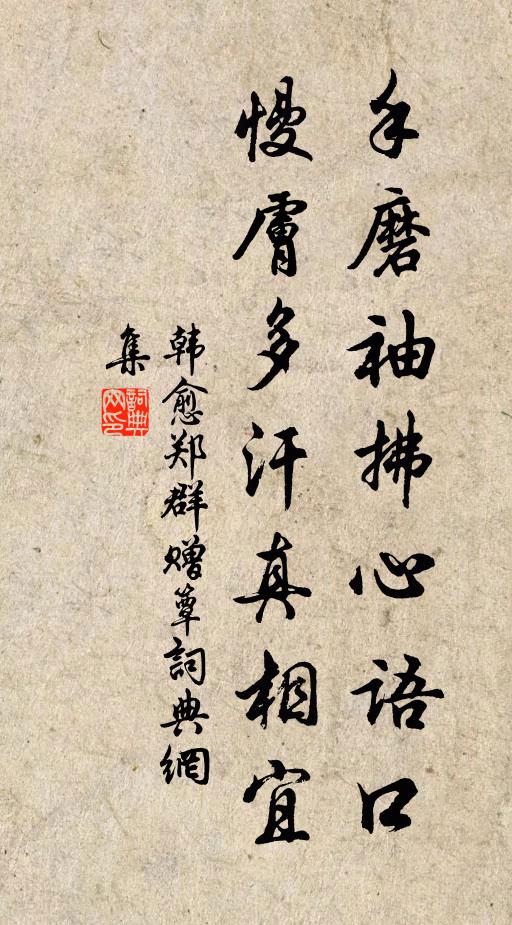 手磨袖拂心語口
慢膚多汗真相宜
韩愈郑群赠簟詞典網
集
詞典
网印